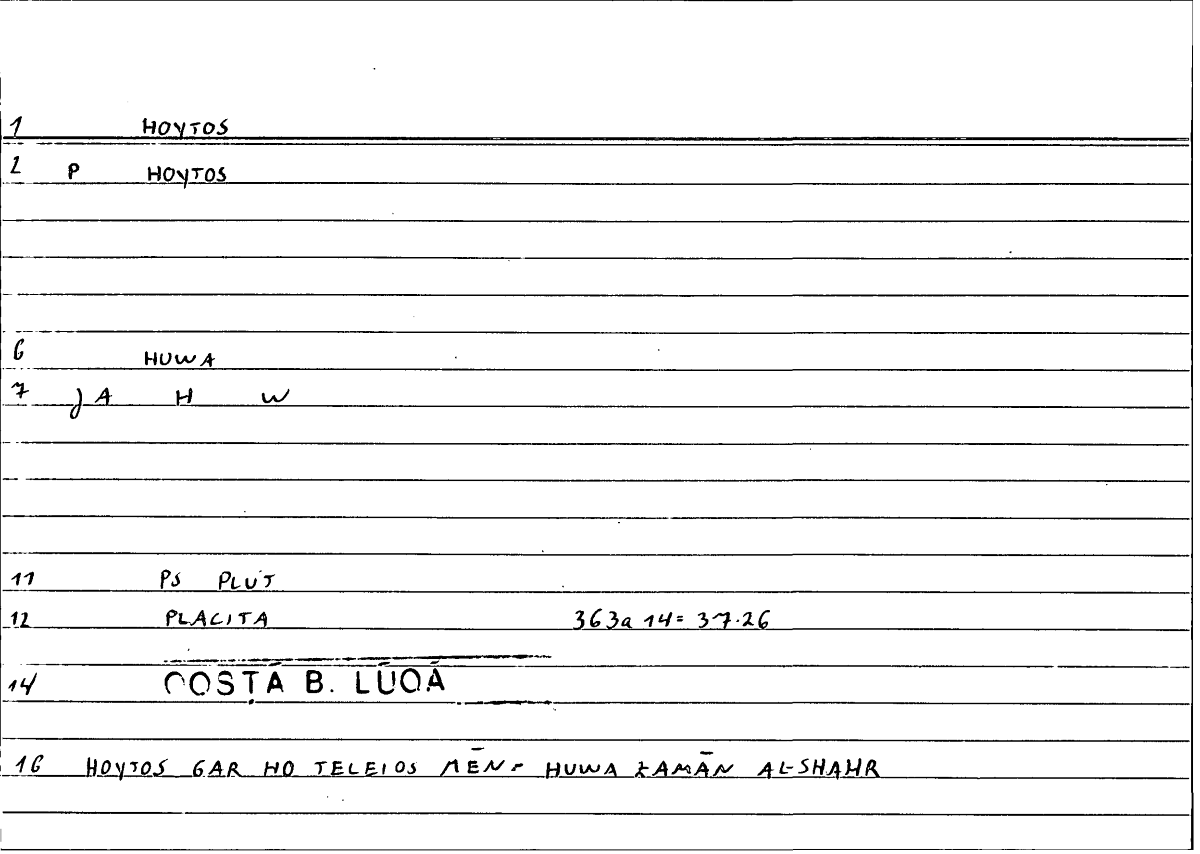 1 HOYTOS
2 P HOYTOS
6 HUWA
7 J A H W
11 PS PLUT
12 PLACITA 363a 14 = 37.26
14 QOSṬĀ B. LŪQĀ
16 HOYTOS GAR HO TELEIOS MĒN = HUWA ZAMĀN AL-SHAHR